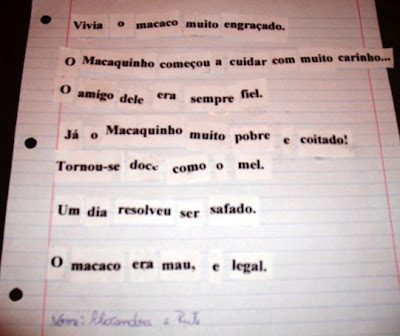 Vivia o macaco muito engraçado.
O Macaquinho começou a cuidar com muito carinho...
O amigo dele era sempre fiel.
Já o Macaquinho muito pobre e coitado!
Tornou-se doce como o mel.
Um dia resolveu ser safado.
O macaco era mau, e legal.
Nome: Alexandra e